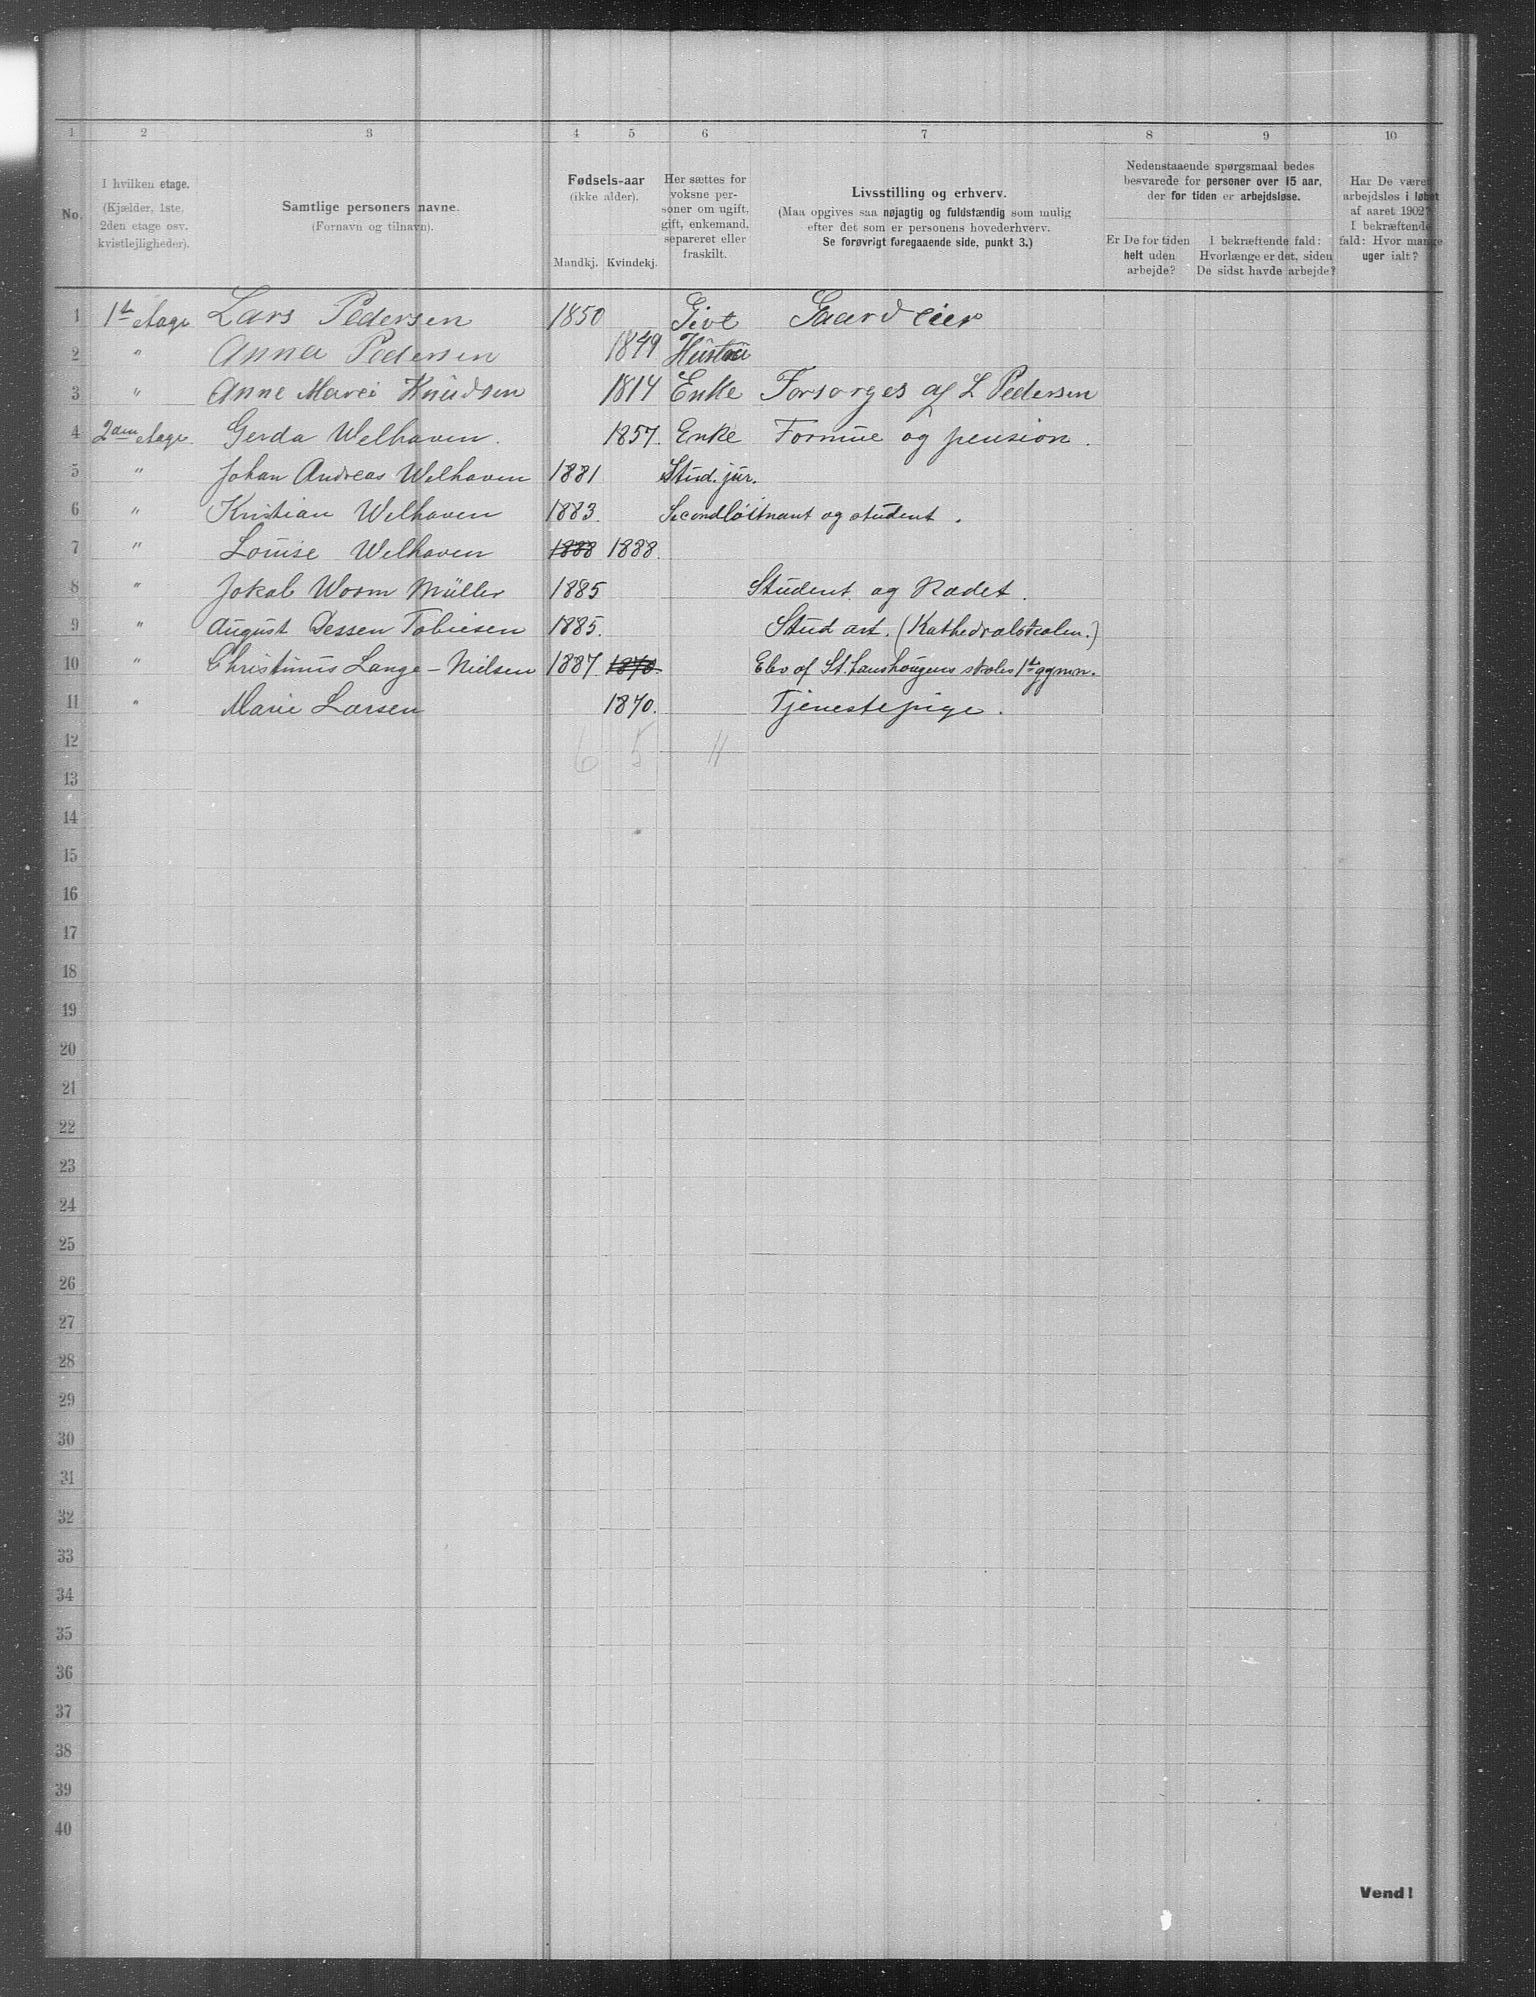 1 2 3 4 5 6 7 8 9 10
No.
I hvilken etage.
(Kjælder, 1ste,
2den etage osv.
kvistlejligheder).
Samtlige personers navne.
(Fornavn og tilnavn).
Fødsels-aar
(ikke alder).
Mandkj. Kvindekj.
Her sættes for
voksne per-
soner om ugift,
gift, enkemand,
separeret eller
fraskilt.
Livsstilling og erhverv.
(Maa opgives saa nøjagtig og fuldstændig som mulig
efter det som er personens hovederhverv.
Se forøvrigt foregaaende side, punkt 3.)
Nedenstaaende spørgsmaal bedes
besvarede for personer over 15 aar,
der for tiden er arbejdsløse.
Er De for tiden
helt uden
arbejde?
I bekræftende fald:
Hvorlænge er det, siden
De sidst havde arbejde?
Har De været
arbejdsløs i løbet
af aaret 1902?
I bekræftende
fald: Hvor mange
uger ialt?
1 1ste etage Lars Pedersen 1850 Givt Gaardeier
2 " Anna Pedersen 1849 Hustru
3 " Anne Marei Knudsen 1814 Enke Forsorges af L Pedersen
4 2den etage Gerda Welhaven. 1857. Enke Formue og pension.
5 " Johan Andreas Welhaven 1881 Stud. jur.
6 " Kristian Welhaven 1883. Secondløitnant og student.
7 " Louise Welhaven 1888 1888.
8 " Jokab Worm Müller 1885 Student og Kadet.
9 " August Dessen Tobiesen 1885. Stud art. (Kathedralskolen.)
10 " Christinus Lange-Nielsen 1887. 1870. Elev af St. Hanshougens skoles 1ste gymn.
11 " Marie Larsen 1870. Tjenestepige.
12 6 5 11
13
14
15
16
17
18
19
20
21
22
23
24
25
26
27
28
29
30
31
32
33
34
35
36
37
38
39
40
Vend!